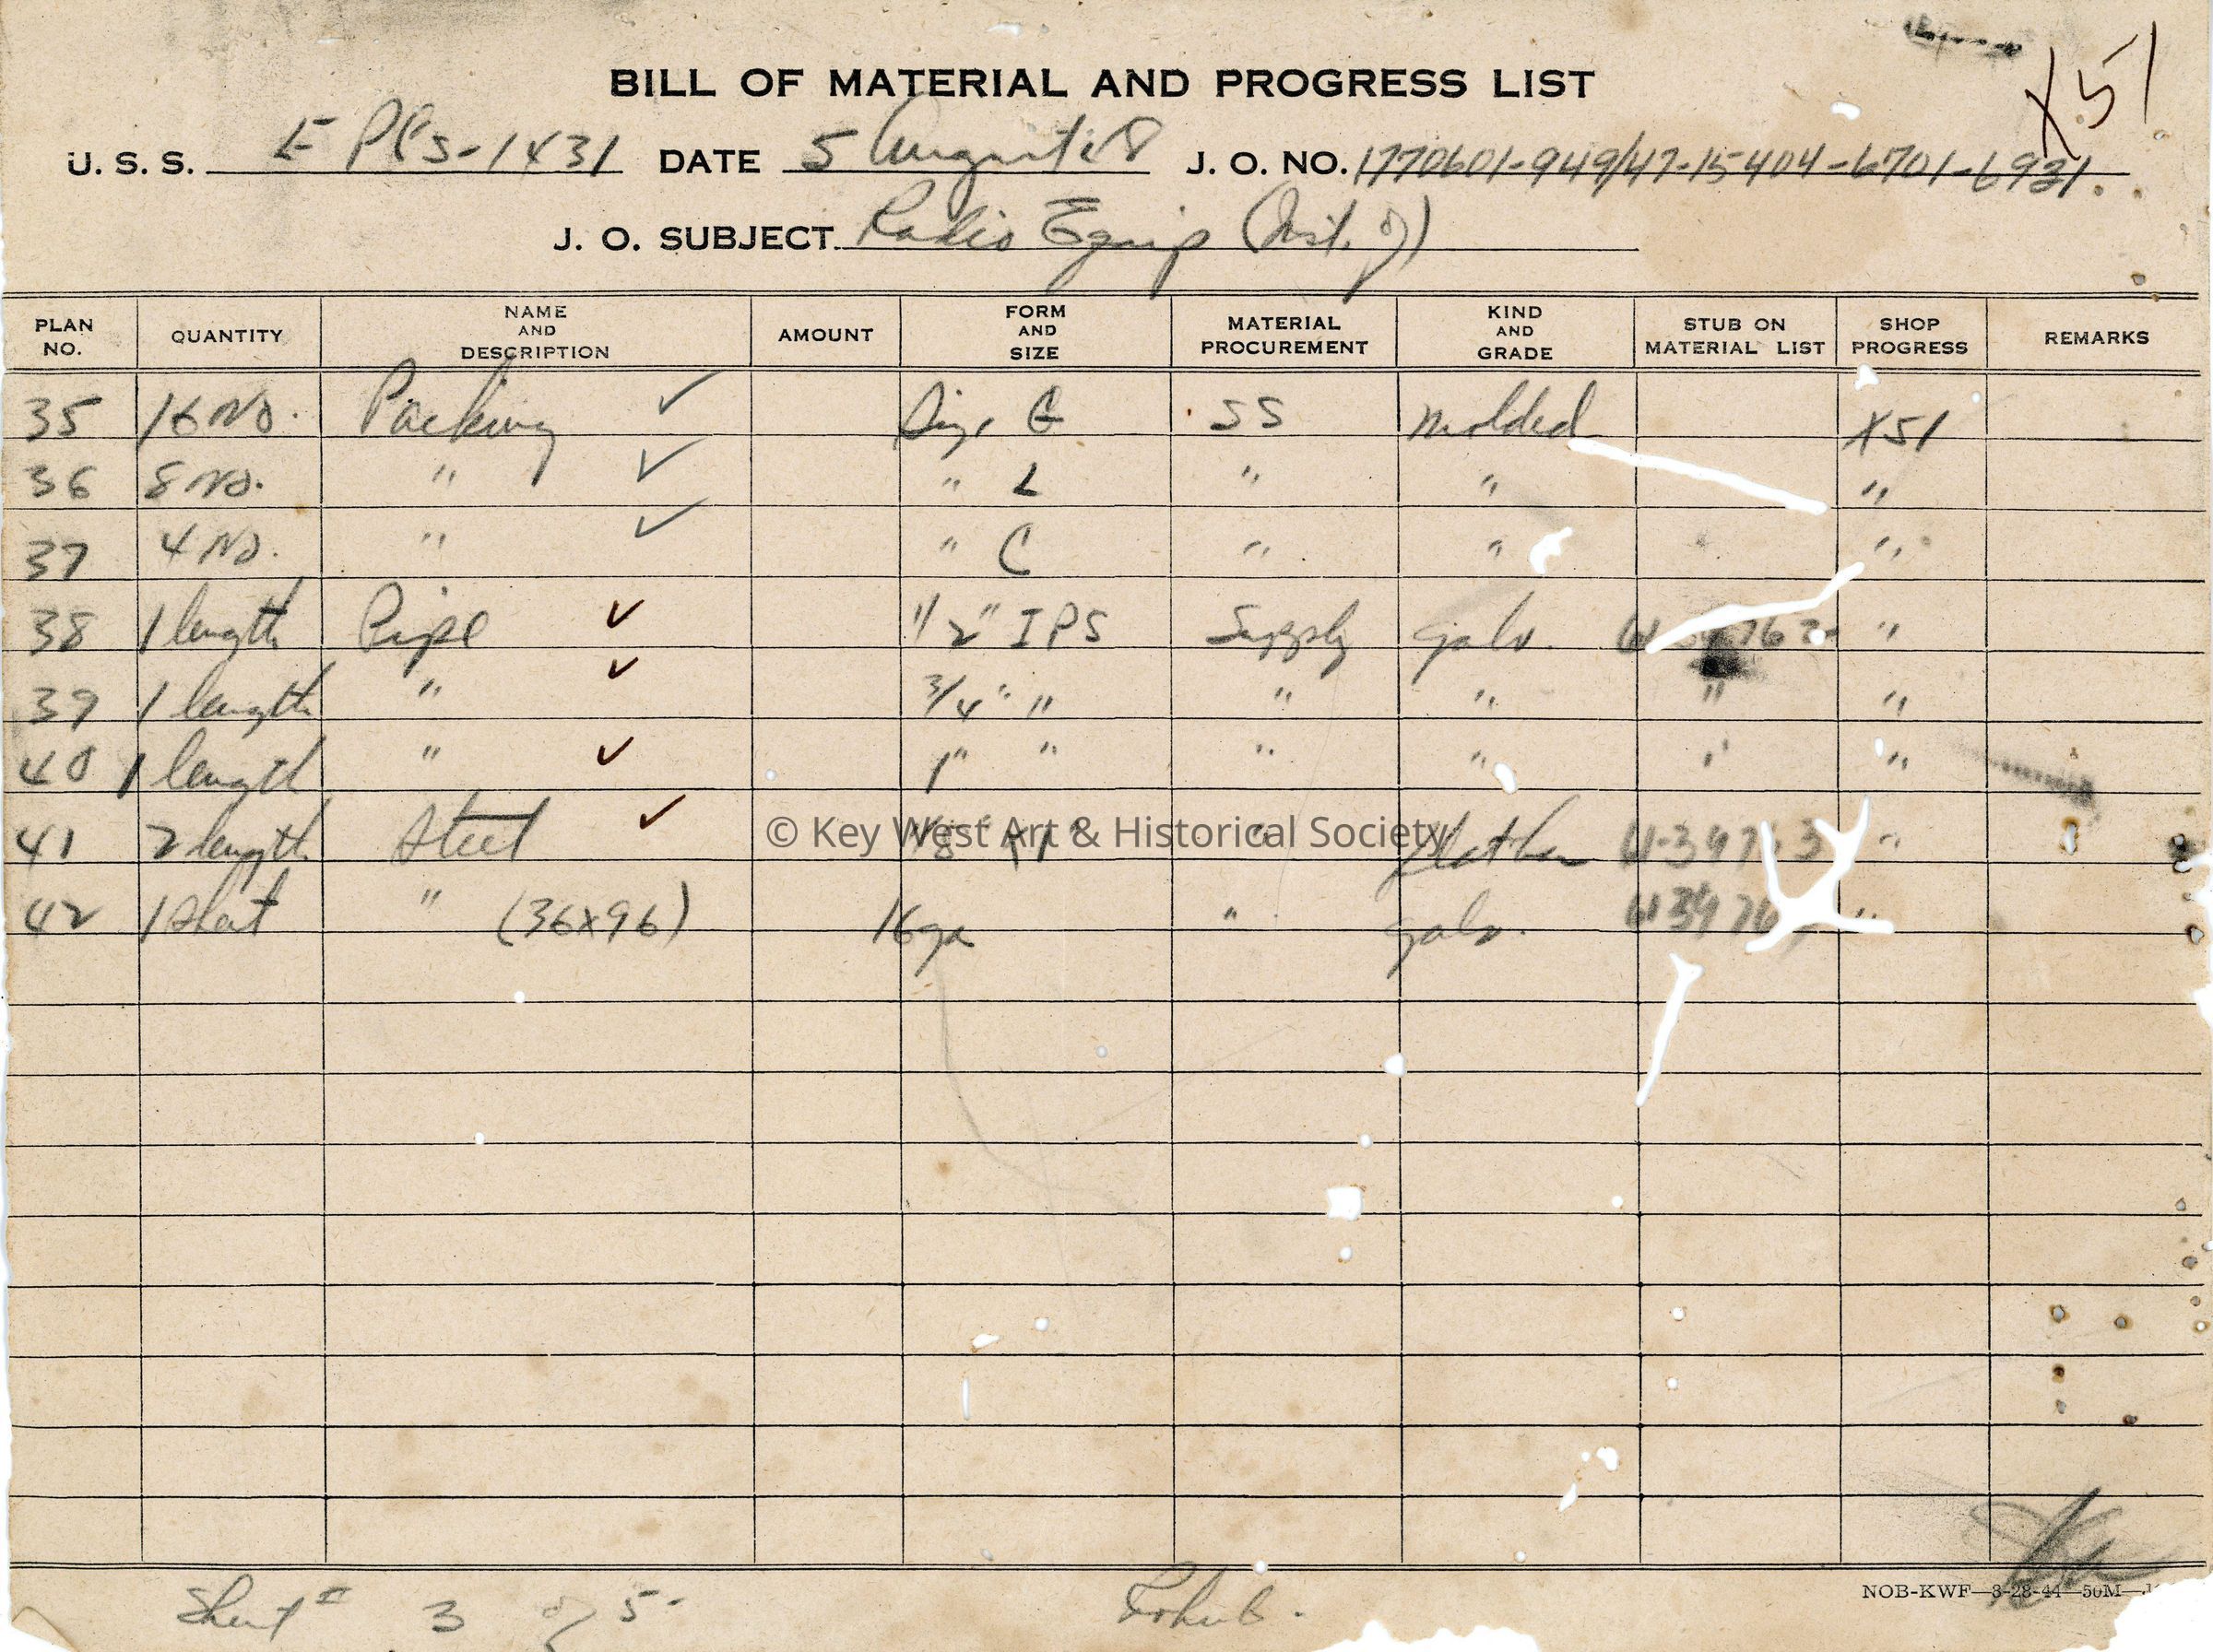 X51
BILL OF MATERIAL AND PROGRESS LIST
U. S. S. E PCS-1431 DATE 5 August 48 J. O. NO. 1770601-949/47-15404-6701-6931.
J. O. SUBJECT Radio Equip (Inst. of)
PLAN NO. QUANTITY NAME AND DESCRIPTION AMOUNT FORM AND SIZE MATERIAL PROCUREMENT KIND AND GRADE STUB ON MATERIAL LIST SHOP PROGRESS REMARKS
35 16 No. Packing ✓ G SS Molded X51
36 8 No. " ✓ " L " " "
37 4 No. " ✓ " C " " "
38 1 length Pipe ✓ 1/2" IPS Supply galv. "
39 1 length " ✓ 3/4" " " " " "
40 1 length " ✓ 1" " " " " "
41 2 length Steel ✓ 1/8" " "
42 1 sheet " (36x96) 16ga " galv. "
© Key West Art & Historical Society
NOB-KWF—3-28-44—50M
Sheet # 3 of 5-